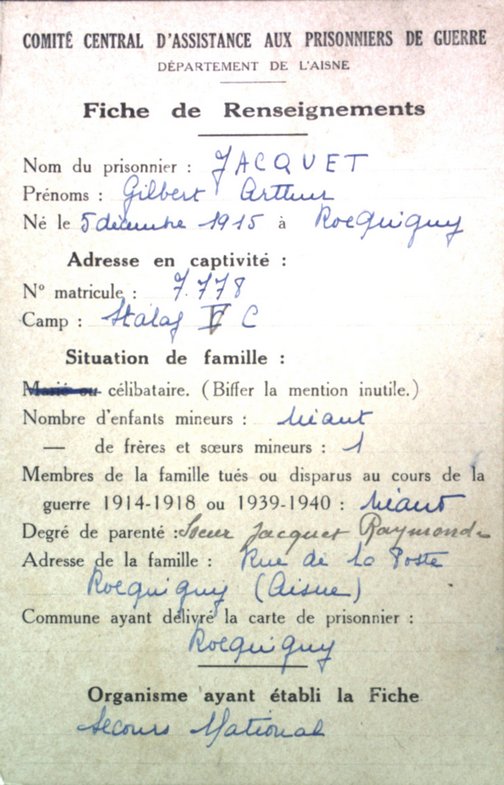 COMITÉ CENTRAL D'ASSISTANCE AUX PRISONNIERS DE GUERRE
DÉPARTEMENT DE L'AISNE
Fiche de Renseignements
Nom du prisonnier : JACQUET
Prénoms : Gilbert Arthur
Né le 5 décembre 1915 à Rocquigny
Adresse en captivité :
N° matricule : 7.778
Camp : Stalag V C
Situation de famille :
Marié ou célibataire. (Biffer la mention inutile.)
Nombre d'enfants mineurs : Néant
— de frères et sœurs mineurs : 1
Membres de la famille tués ou disparus au cours de la
guerre 1914-1918 ou 1939-1940 : Néant
Degré de parenté : Soeur Jacquet Raymonde
Adresse de la famille : Rue de la Poste
Rocquigny (Aisne)
Commune ayant délivré la carte de prisonnier :
Rocquigny
Organisme ayant établi la Fiche
Secours National